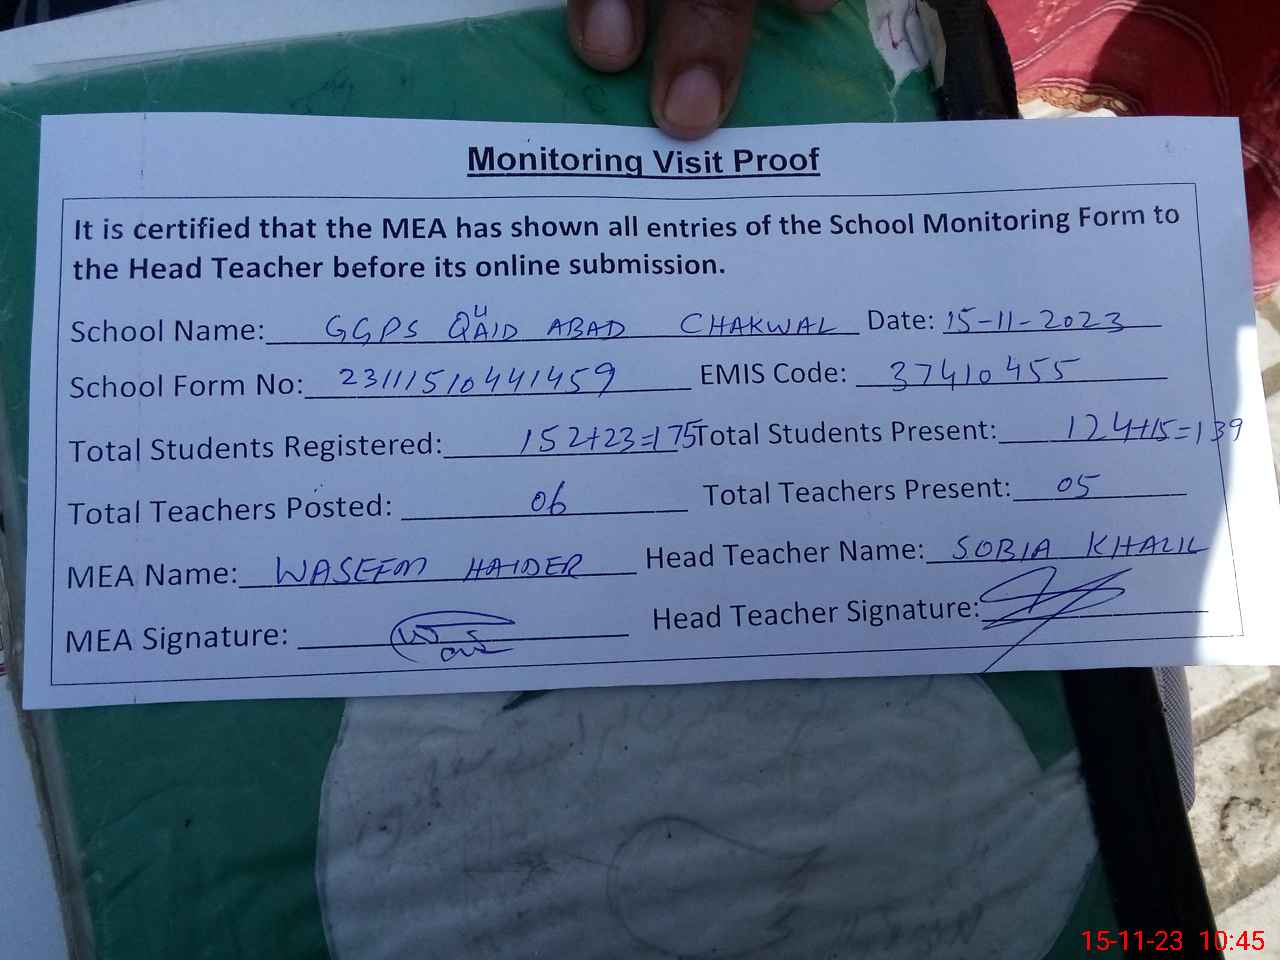 Monitoring Visit Proof
It is certified that the MEA has shown all entries of the School Monitoring Form to
the Head Teacher before its online submission.
School Name: GGPS QUAID ABAD CHAKWAL Date: 15-11-2023
School Form No: 23111510441459 EMIS Code: 37410455
Total Students Registered: 152+23=175 Total Students Present: 124+15=139
Total Teachers Posted: 06 Total Teachers Present: 05
MEA Name: WASEEM HAIDER Head Teacher Name: SOBIA KHALIL
MEA Signature: Head Teacher Signature:
15-11-23 10:45